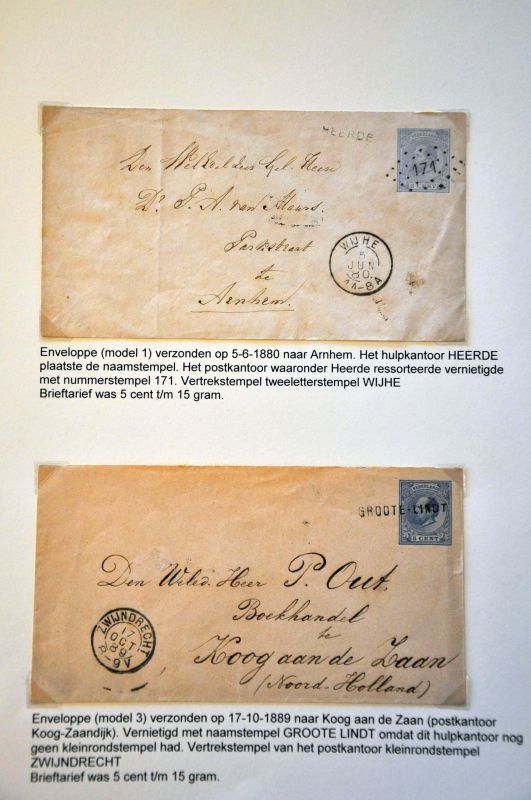 HEERDE
NEDERLAND
171
5 CENT
Den Weledelen Gel. Heer
Dr. P. A. van
Parkstraat
te
Arnhem.
WIJHE
5
JUN
80
8A
Enveloppe (model 1) verzonden op 5-6-1880 naar Arnhem. Het hulpkantoor HEERDE
plaatste de naamstempel. Het postkantoor waaronder Heerde ressorteerde vernietigde
met nummerstempel 171. Vertrekstempel tweeletterstempel WIJHE
Brieftarief was 5 cent t/m 15 gram.
NEDERLAND
GROOTE-LINDT
5 CENT
Den Weled. Heer P. Out,
Boekhandel
te
Koog aan de Zaan
(Noord-Holland)
ZWIJNDRECHT
17
OCT
89
8-9V
Enveloppe (model 3) verzonden op 17-10-1889 naar Koog aan de Zaan (postkantoor
Koog-Zaandijk). Vernietigd met naamstempel GROOTE LINDT omdat dit hulpkantoor nog
geen kleinrondstempel had. Vertrekstempel van het postkantoor kleinrondstempel
ZWIJNDRECHT
Brieftarief was 5 cent t/m 15 gram.